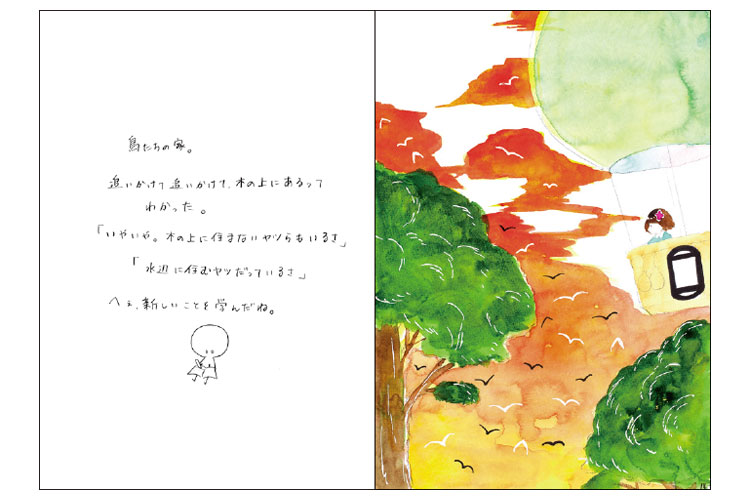 鳥たちの家。
追いかけて追いかけて、木の上にあるって
わかった。
「いやいや。木の上に住まないヤツらもいるさ」
「水辺に住むヤツだっているさ」
へぇ、新しいことを学んだね。